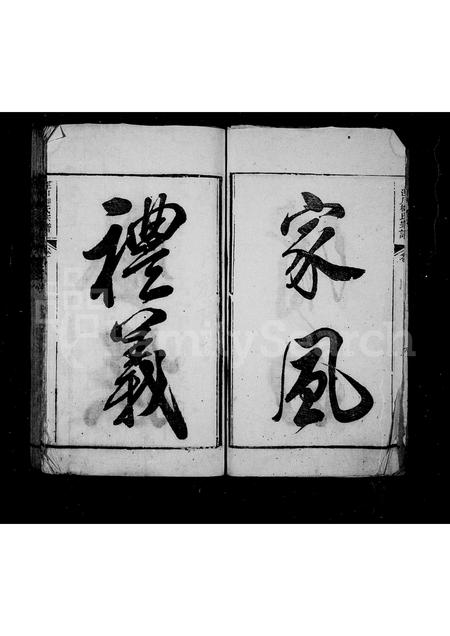 家風
禮義
FamilySearch